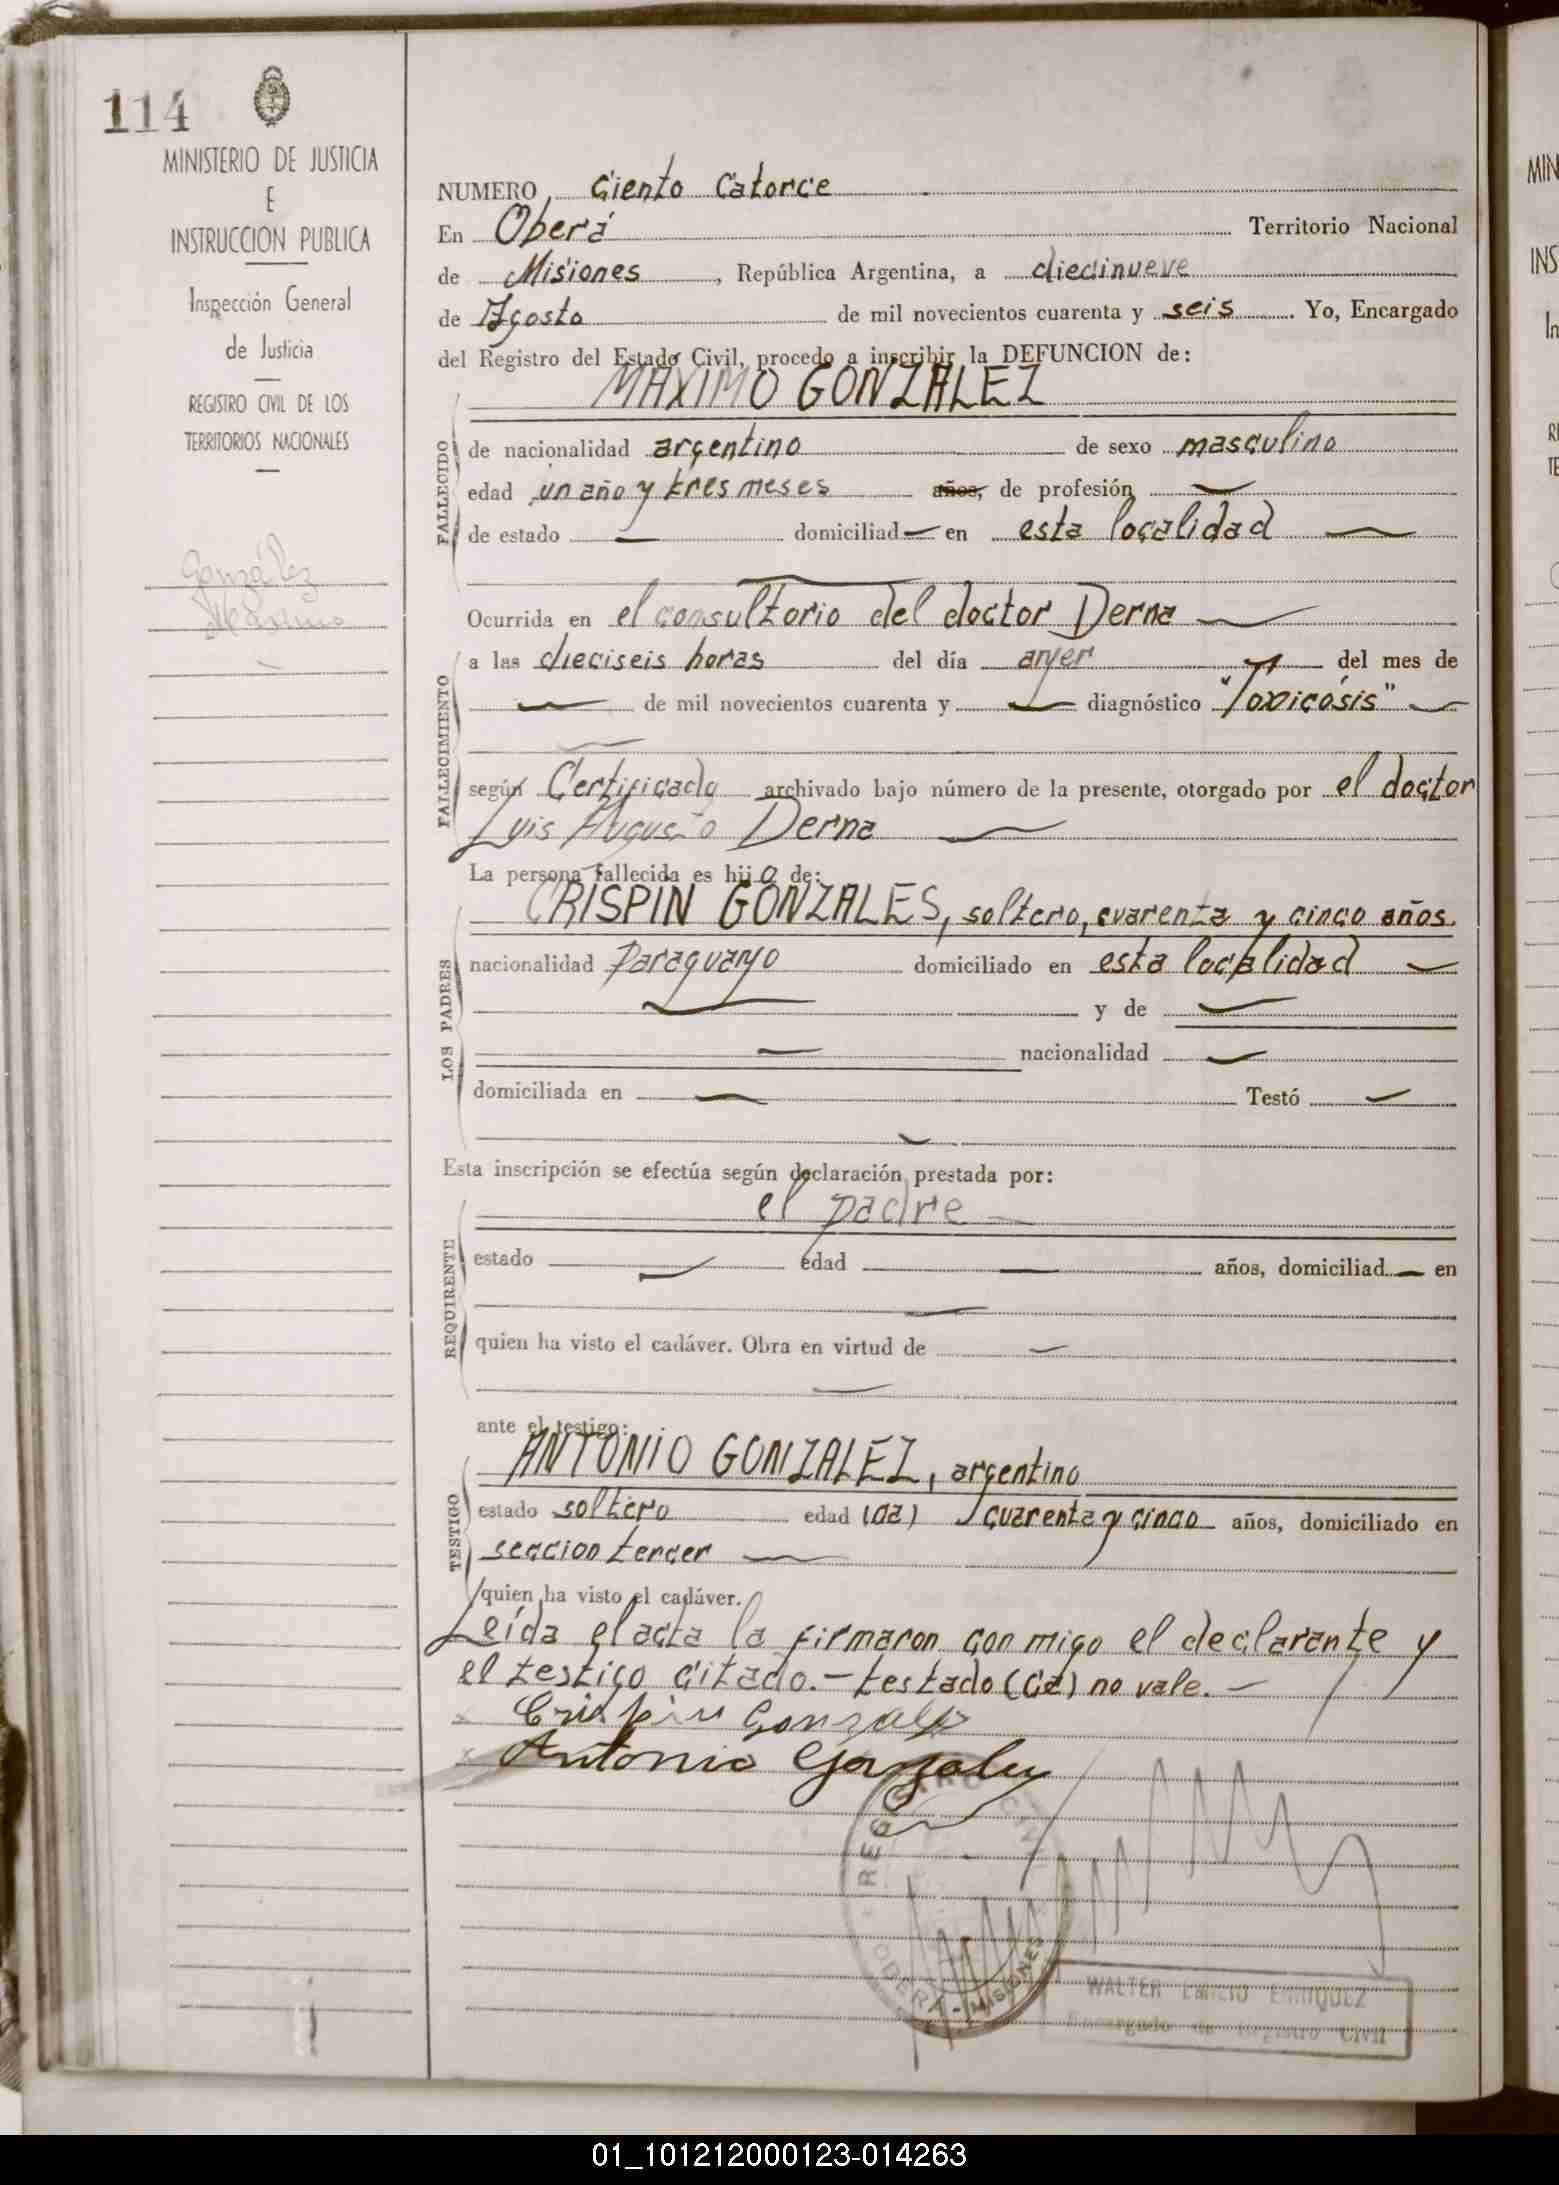 114
MINISTERIO DE JUSTICIA
E
INSTRUCCION PUBLICA
Inspección General
de Justicia
REGISTRO CIVIL DE LOS
TERRITORIOS NACIONALES
González
Máximo
NUMERO Ciento Catorce
En Oberá Territorio Nacional
de Misiones, República Argentina, a diecinueve
de Agosto de mil novecientos cuarenta y seis. Yo, Encargado
del Registro del Estado Civil, procedo a inscribir la DEFUNCION de:
MAXIMO GONZALEZ
FALLECIDO
de nacionalidad argentino de sexo masculino
edad un año y tres meses años, de profesión
de estado domiciliad en esta localidad
Ocurrida en el consultorio del doctor Derna
FALLECIMIENTO
a las dieciseis horas del día ayer del mes de
de mil novecientos cuarenta y diagnóstico "Toxicósis"
según Certificado archivado bajo número de la presente, otorgado por el doctor
Luis Augusto Derna
La persona fallecida es hijo de:
LOS PADRES
CRISPIN GONZALES, soltero, cuarenta y cinco años.
nacionalidad Paraguayo domiciliado en esta localidad
y de
nacionalidad
domiciliada en Testó
Esta inscripción se efectúa según declaración prestada por:
REQUIRENTE
el padre
estado edad años, domiciliad en
quien ha visto el cadáver. Obra en virtud de
ante el testigo:
TESTIGO
ANTONIO GONZALEZ, argentino
estado soltero edad (ca) cuarenta y cinco años, domiciliado en
seccion tercer
quien ha visto el cadáver.
Leída el acta la firmaron con migo el declarante y
el testigo citado.- testado (ca) no vale.-
x Crispin Gonzalez
x Antonio Gonzalez
REGISTRO CIVIL
OBERA - MISIONES
WALTER EMILIO ENRIQUEZ
Encargado de Registro Civil
01_101212000123-014263